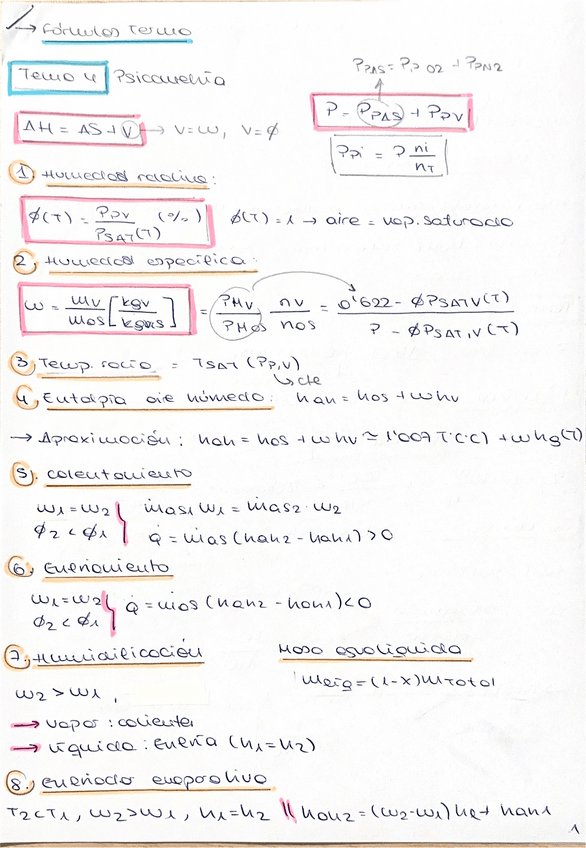 Fórmulas Termo
Tema 4 Psicometría
P_PAS = P_P O2 + P_P N2
P = P_PAS + P_PV
ΔH = AS + V → V=ω, V=φ
P_Pi = P ni/n_T
1, Humedad relativa:
φ(T) = P_PV / P_SAT(T) (%) φ(T) = 1 → aire = vap. saturado
2, Humedad específica:
ω = m_v/m_as [kg_v/kg_as] = PM_v/PM_as n_v/n_as = 0'622 - φP_SAT V(T) / P - φP_SAT,V(T)
3, Temp. rocío = T_SAT (P_P,V)
↳ cte
4, Entalpía aire húmedo: h_ah = h_as + ω h_v
→ Aproximación: h_ah = h_as + ω h_v ≃ 1'007 T(ºC) + ω h_g(T)
5, Calentamiento
ω1 = ω2 ṁ_as1 ω1 = ṁ_as2 · ω2
φ2 < φ1 Q̇ = ṁ_as (h_ah2 - h_ah1) > 0
6, Enfriamiento
ω1 = ω2 Q̇ = ṁ_as (h_ah2 - h_ah1) < 0
φ2 < φ1
7, Humidificación Masa agua líquida
ω2 > ω1, m_líq = (1-x) m_Total
→ vapor: calienta
→ líquida: enfría (h1 = h2)
8, Enfriador evaporativo
T2 < T1, ω2 > ω1, h1 = h2 || h_ah2 = (ω2-ω1) h_l + h_ah1
1